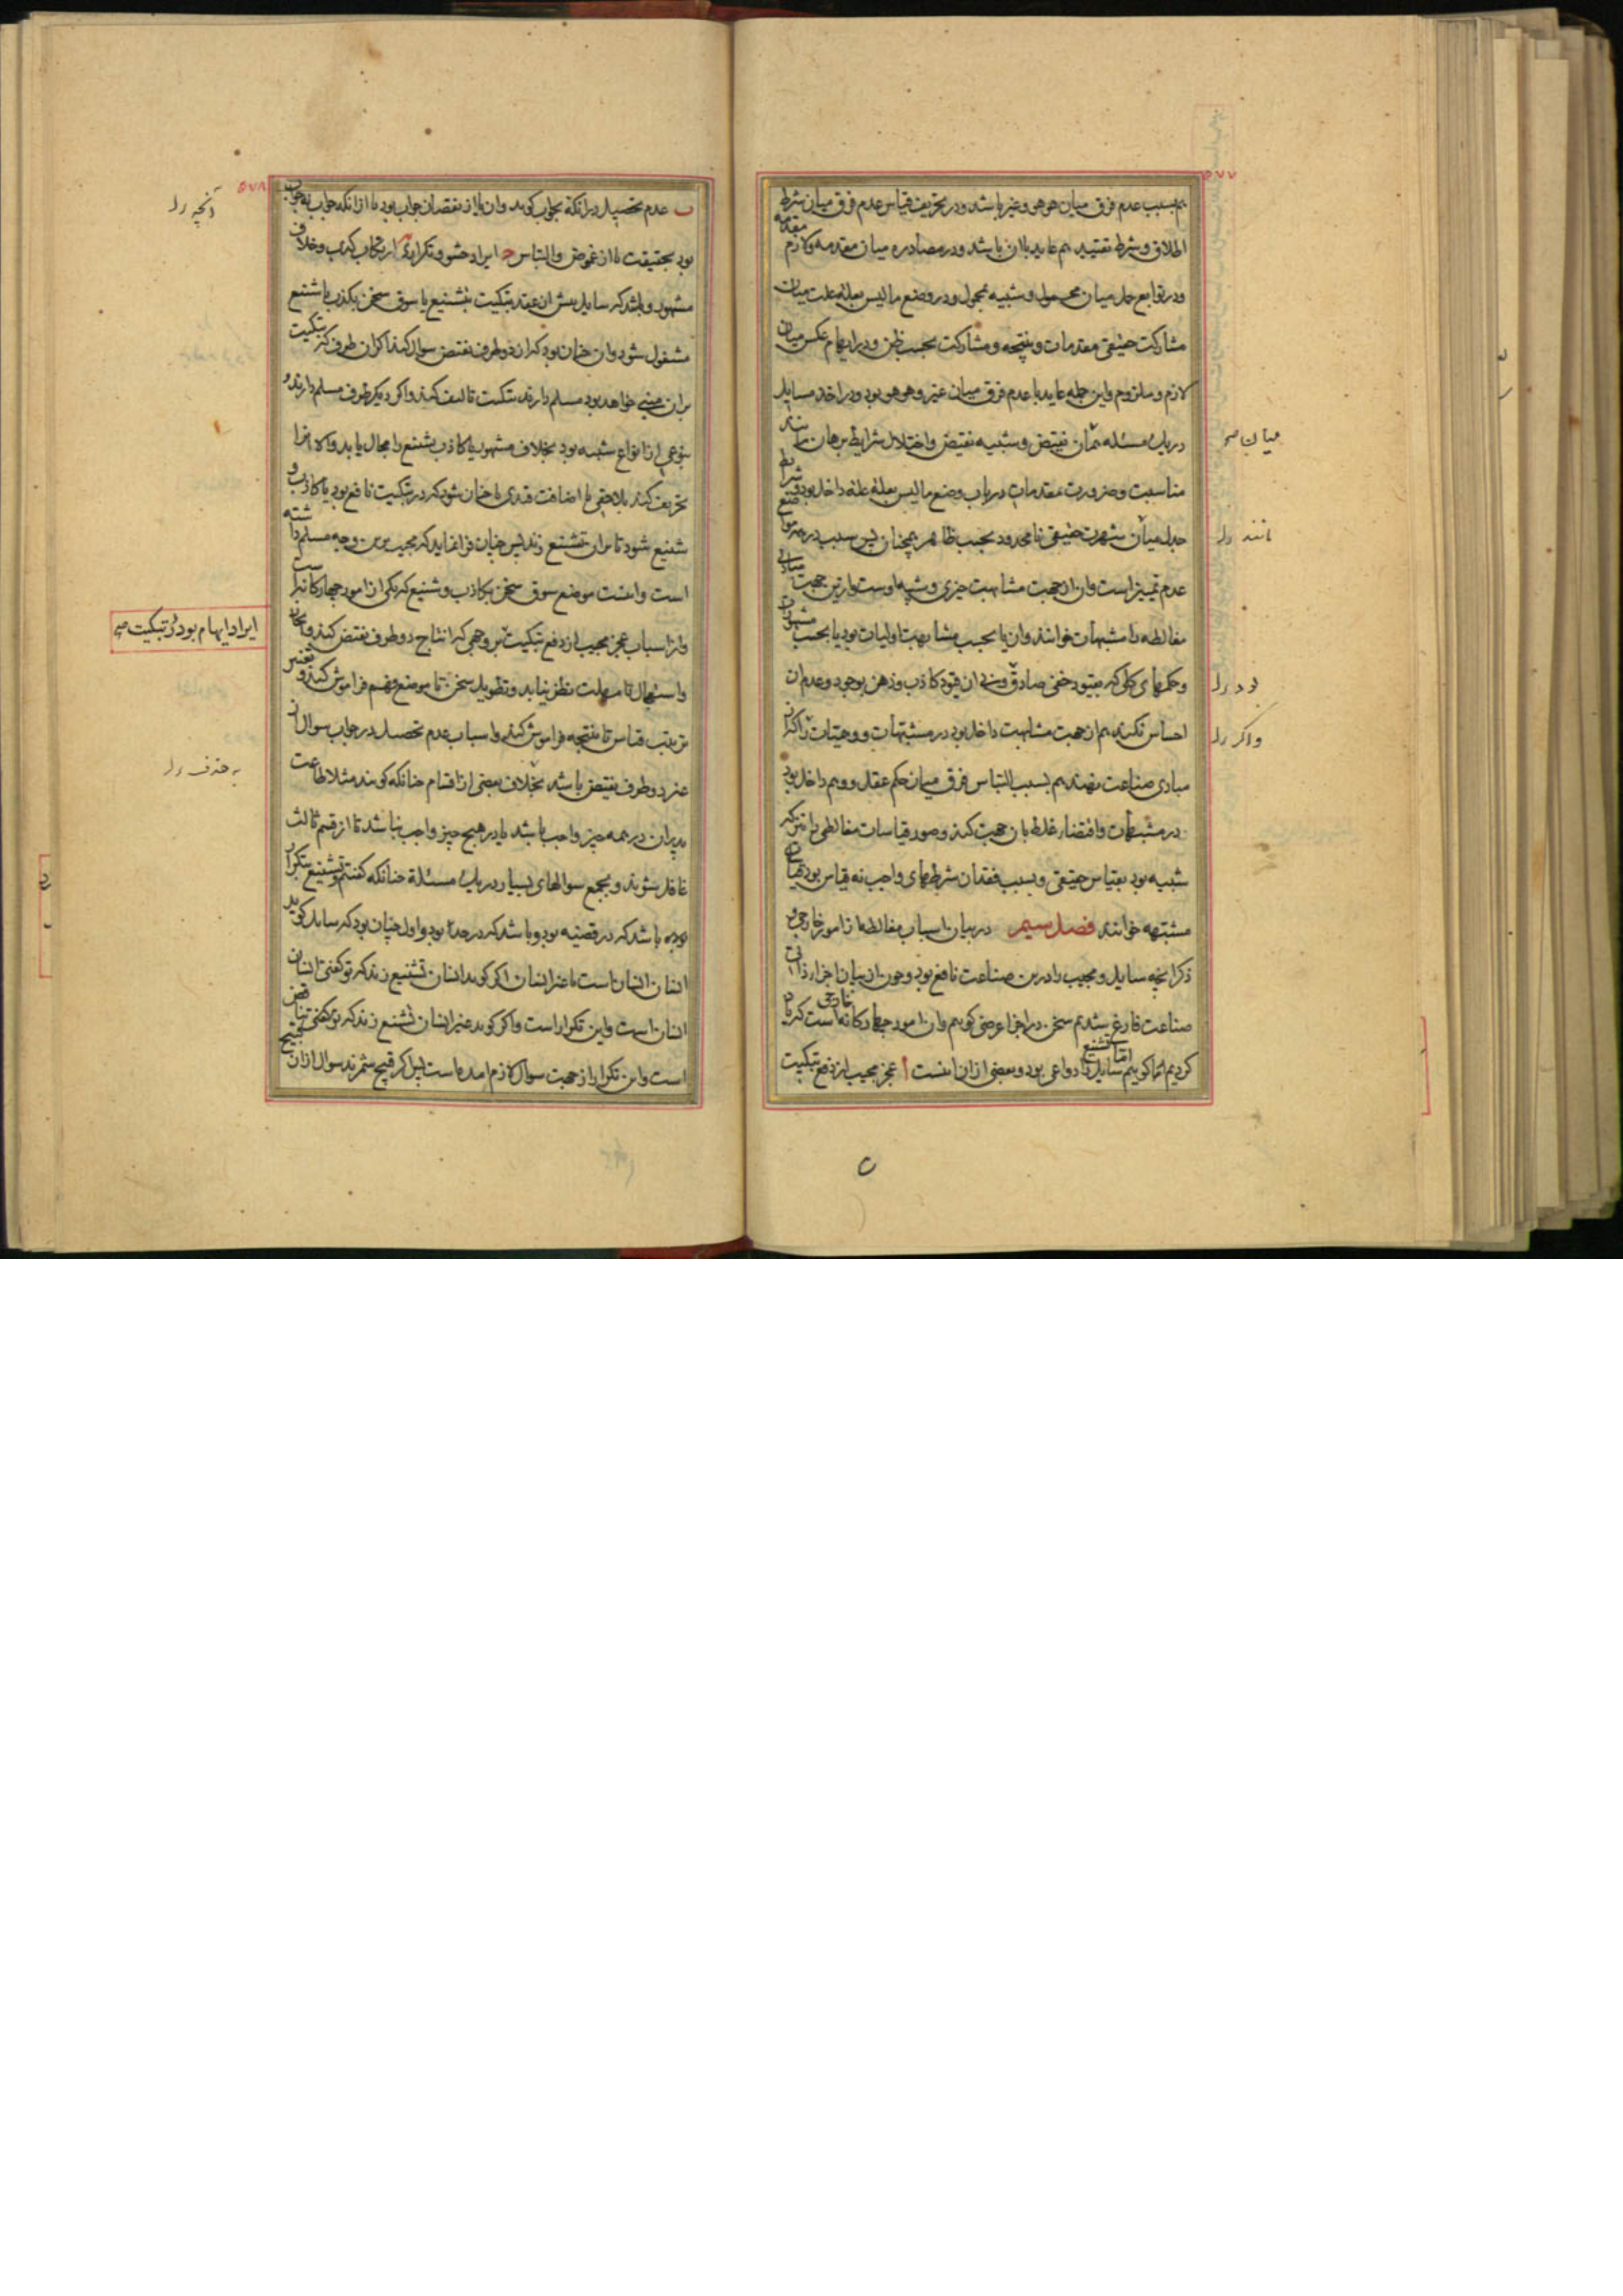 ۵۷۷
هم بسبب عدم فرق میان هو هو و غیر باشد و در تحریف قیاس عدم فرق میان شرط
اطلاق و شرط تقیید هم عاید باان باشد و در مصادره میان مقدمه ولازم مقدمه
ودر توابع حمل میان محمول و شبیه بمحمول و در وضع مالیس بعلة علت میان
مشارکت حقیقی مقدمات و نتیجه و مشارکت بحسب ظن و در ایهام عکس میان
لازم و ملزوم واین جمله عاید با عدم فرق میان غیر و هو هو بود و در اخذ مسایل
در یک مسئله میان نقیض و شبیه نقیض و اختلال شرایط برهان مانند
مناسبت و ضرورت مقدمات در باب وضع مالیس بعلة علة داخل بود و شرایط
جدل میان شهرت حقیقی نامحدود بحسب ظاهر همچنان پس سبب در همه مواضع
عدم تمییز است وان از جهت مشابهت چیزی و شبیه اوست وازین جهت مبادی
مغالطه را مشبهات خوانند وان یا بحسب مشابهت اولیات بود یا بحسب مشهورات
و حکمهای کلی که بقیود خفی صادق و بی ان قیود کاذب و ذهن بوجود و عدم ان
احساس نکند هم از جهت مشابهت داخل بود در مشبهات و وهمیات را که از
مبادی صناعت نهند هم بسبب التباس فرق میان حکم عقل و وهم داخل بود
در مشبهات واقتضاء غلط بان جهت کند و صور قیاسات مغالطی را نیز که
شبیه بود بقیاس حقیقی و بسبب فقدان شرطهای واجب نه قیاس بود قیاس
مشتبهه خوانند فصل سیم در بیان اسباب مغالطه از امور خارجی و
ذکر انچه سایل و مجیب را درین صناعت نافع بود و چون از بیان اجزاء ذاتی
صناعت فارغ شدیم سخن در اجزاء عرضی گوییم وان امور چهارگانه خارجی است که یاد
کردیم اما گوییم اسباب تشنیع سایل را دواعی بود و بعضی از ان اینست ا عجز مجیب از دفع تبکیت
میان صح
مانند رل
بود رل
واگر رل
۵۷۸
ب عدم تحصیل در انکه بجواب گوید وان یا از نقصان جواب بود یا از انکه جواب نه جواب
بود بحقیقت یا از غموض والتباس ج ایراد حشو و تکرار د ارتکاب کذب و خلاف
مشهور و باشد که سایل پیش از عقد تبکیت بتشنیع یا سوق سخن بکذب یا شنیع
مشغول شود وان چنان بود که از دو طرف نقیض سوال کند تا کر ان طرف که تبکیت
بران مبنی خواهد بود مسلم دارند تبکیت تالیف کند واگر دیگر طرف مسلم دارند و
بنوعی از انواع شبیه بود بخلاف مشهور یا کاذب تشنیع را مجال یابد والا انرا
تحریف کند بلاحقی یا اضافت قیدی تا چنان شود که در تبکیت نافع بود یا کاذب و
شنیع شود تا بران تشنیع زند پس چنان فرا نماید که مجیب برین وجه مسلم داشته
است واینست موضع سوق سخن بکاذب و شنیع که یکی از امور چهارگانه است
واز اسباب عجز مجیب از دفع تبکیت بر وجهی که انتاج دو طرف نقیض کند و ایجاز
واستعجال تا مهلت نظر نیابد و تطویل سخن تا موضع فهم فراموش کند و تغییر
ترتیب قیاس تا نتیجه فراموش کند و اسباب عدم تحصیل در جواب سوال از
غیر دو طرف نقیض باشد بخلاف بعضی از اقسام چنانکه گویند مثلا طاعت
پدران در همه چیز واجب باشد یا در هیچ چیز واجب نباشد تا از قسم ثالث
غافل شوند و بجمع سوالهای بسیار در یک مسئله چنانکه گفتیم و تشنیع بتکرار
بوده باشد که در قضیه بود و باشد که در حد بود و اول چنان بود که سایل گوید
انسان انسان است یا غیر انسان اگر گوید انسان تشنیع زند که تو گفتی انسان
انسان است واین تکرار است واگر گوید غیر انسان تشنیع زند که تو گفتی تناقض
است واین تکرار از جهت سوال لازم امده است پس اگر قبیح شمرند سوال از ان قبیح
آنچه رل
ایراد ایهام بود در تبکیت صح
به حذف رل